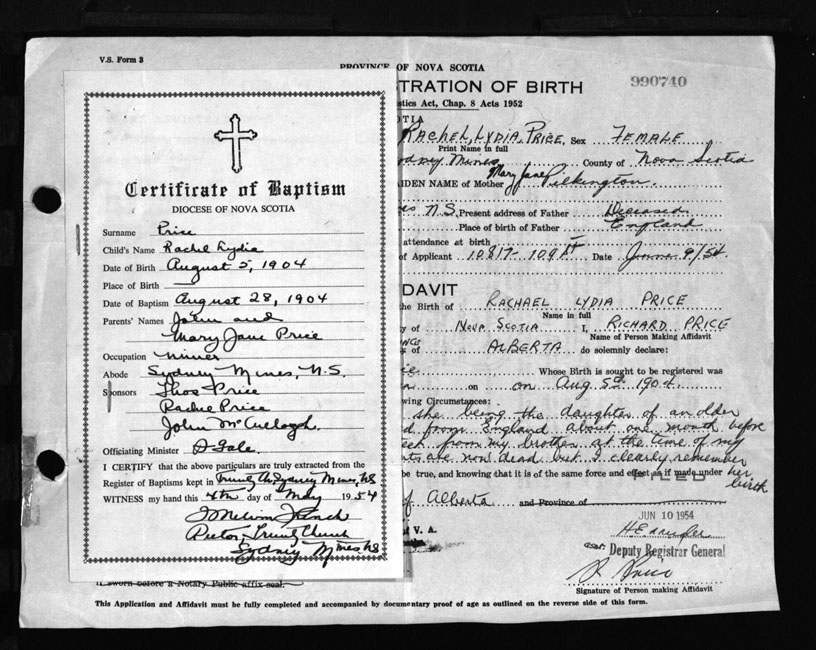 V.S. Form 3
PROVINCE OF NOVA SCOTIA
990740
TRATION OF BIRTH
tistics Act, Chap. 8 Acts 1952
OTIA
RACHEL, LYDIA, PRICE, Sex FEMALE
Print Name in full
dney Mines County of Nova Scotia
AIDEN NAME of Mother Mary Jane Pilkington.
es N.S. Present address of Father Deceased
Place of birth of Father England
attendance at birth
of Applicant 10817- 109 St Date June 9/54
DAVIT
the Birth of RACHAEL LYDIA PRICE
Name in full
y of NOVA SCOTIA I, RICHARD PRICE
Name of Person Making Affidavit
of ALBERTA do solemnly declare:
Whose Birth is sought to be registered was
on on Aug 5th 1904.
wing Circumstances:
she being the daughter of an older
d from England about one month before
eek from my brother at the time of my
ts are now dead but I clearly remember
be true, and knowing that it is of the same force and effect as if made under her
birth
of Alberta and Province of
JUN 10 1954
V. A.
Deputy Registrar General
R Price
Signature of Person making Affidavit
If sworn before a Notary Public affix seal.
This Application and Affidavit must be fully completed and accompanied by documentary proof of age as outlined on the reverse side of this form.
Certificate of Baptism
DIOCESE OF NOVA SCOTIA
Surname Price
Child's Name Rachel Lydia
Date of Birth August 5, 1904
Place of Birth
Date of Baptism August 28, 1904
Parents' Names John and
Mary Jane Price
Occupation miner
Abode Sydney Mines, N.S.
Sponsors Thos Price
Rachel Price
John McCullagh
Officiating Minister D Gale
I CERTIFY that the above particulars are truly extracted from the
Register of Baptisms kept in Trinity Ch. Sydney Mines, NS
WITNESS my hand this 4th day of May 1954
Rector, Trinity Church
Sydney Mines NS